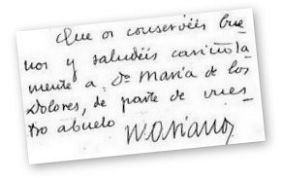 Que os conservéis bue
nos y saludéis cariñosa
mente a Dª Maria de los
Dolores, de parte de vues
tro abuelo Mariano